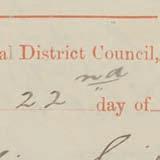 al District Council,
22nd day of